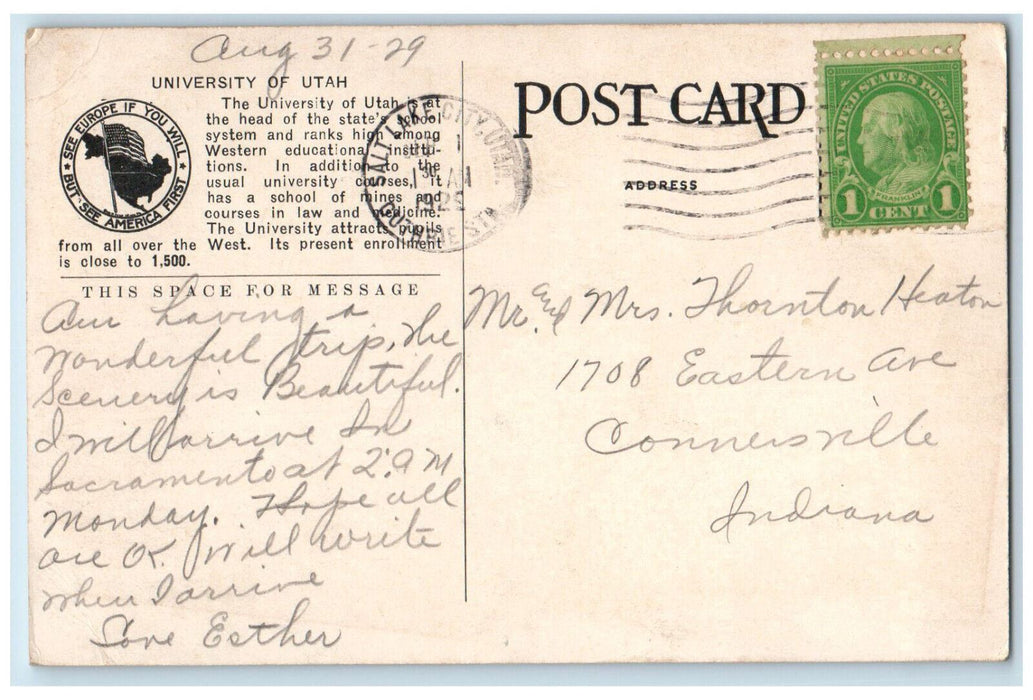 Aug 31-29
UNIVERSITY OF UTAH
The University of Utah is at
the head of the state's school
system and ranks high among
Western educational institu-
tions. In addition to the
usual university courses, it
has a school of mines and
courses in law and medicine.
The University attracts pupils
from all over the West. Its present enrollment
is close to 1,500.
SEE EUROPE IF YOU WILL
BUT SEE AMERICA FIRST
THIS SPACE FOR MESSAGE
Am having a
wonderful trip, the
Scenery is Beautiful.
I will arrive In
Sacramento at 2. A M
Monday. Hope all
are OK. Will write
when I arrive
Love Esther
POST CARD
SALT LAKE CITY, UTAH
1
1 30 AM
ADDRESS
UNITED STATES POSTAGE
FRANKLIN
1 CENT 1
Mr. and Mrs. Thornton Heaton
1708 Eastern Ave
Connersville
Indiana